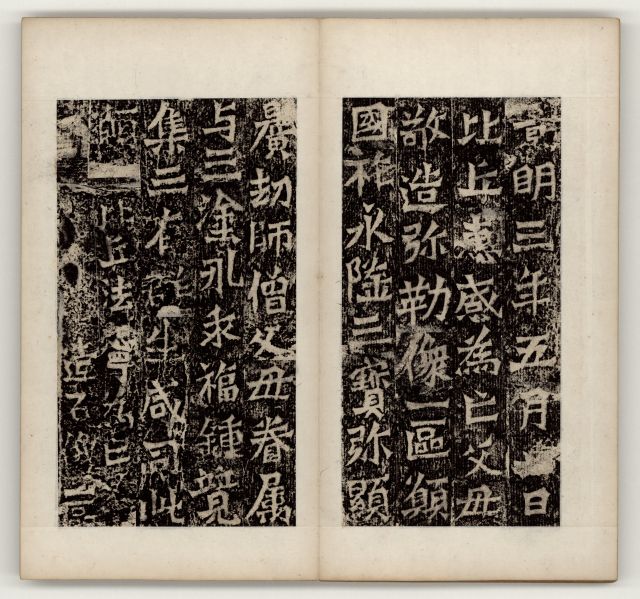 景明三年五月日
比丘惠感為亡父母
敬造弥勒像一區願
國祚永隆三寶弥顯
曠劫師僧父母眷属
与三塗永乖福鍾竟
集三有群生咸同此
願
比丘法寧為亡
造石像一